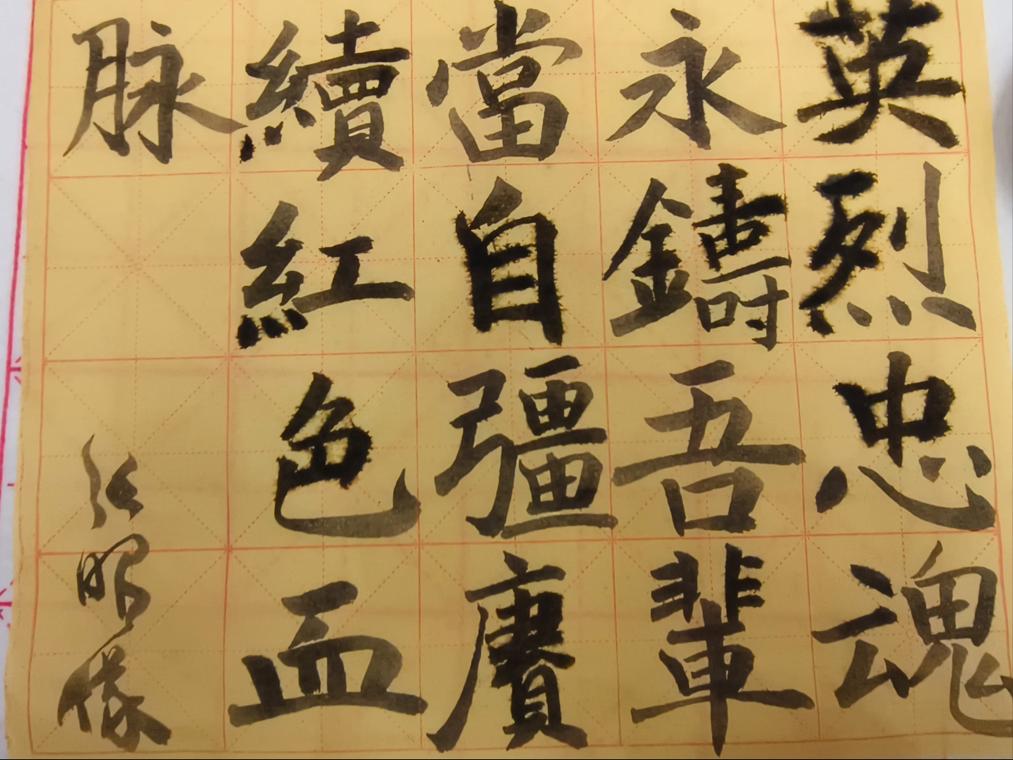 英烈忠魂
永鑄吾輩
當自彊賡
續紅色血
脉